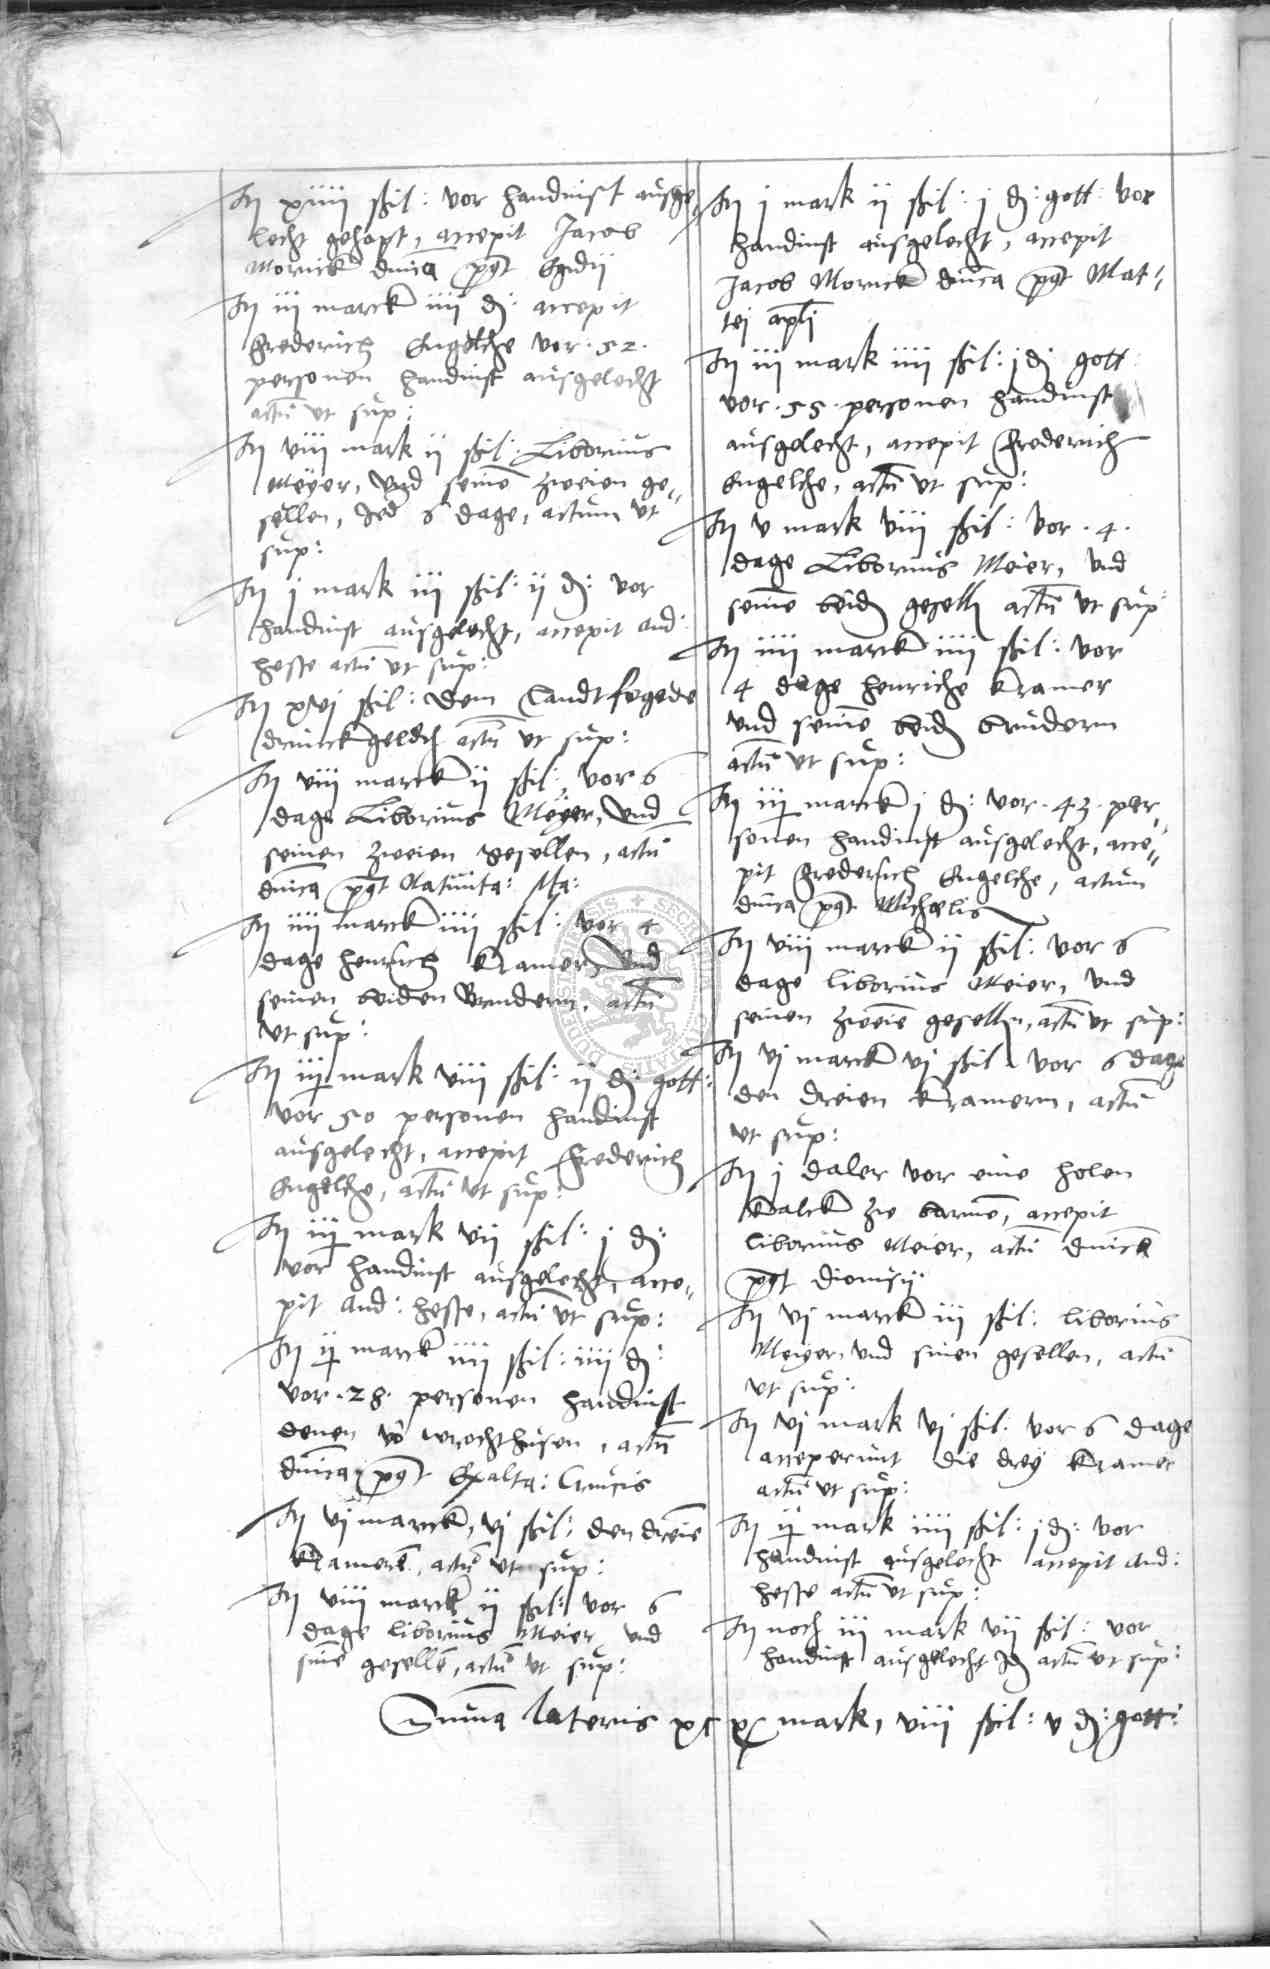 It xiiii ßil: vor handinst ausge,
lecht gehapt, accepit Jacob
Mornick dnica post Egidij
It iii marck iiii d: accepit
Frederich Engelche vor . 52 .
personen handinst ausgelecht
actu ut sup:
It viii mark ii ßil: Liborius
Meyer, und seine zweien ge"
sellen, Jed 6 dage, actum ut
sup:
It j mark iii ßil: ij d: vor
handinst ausgelecht, accepit And:
Hesse actu ut sup:
It xvj ßil: dem Landtfogede
drinckgeld actu ut sup:
It viii marck ii ßil: vor 6
dage Liborius Meyer, und
seinen zweien gesellen, actu
dnica post Nativita: Ma:
It iiii marck iiii ßil: vor 4
dage Henrich Kramer, und
seinen beiden brudern, actu
ut sup:
It iij mark viii ßil: ij d: gott:
vor 50 personen handinst
ausgelecht, accepit Frederich
Engelche, actu ut sup:
It iij mark vii ßil: j d:
vor handinst ausgelecht, acce"
pit And: Hesse, actu ut sup:
It ij marck iiii ßil: iiii d:
vor . 28 . personen handinst
denen vo wrechthusen, actu
dnica post Exalta: Crucis
It vj marck, vj ßil: den dreie
Kramere, actu ut sup:
It viii marck ii ßil: vor 6
dage liborius Meier und
sine geselle, actu ut sup:
It j mark ii ßil: j d: gott: vor
handinst ausgelecht, accepit
Jacob Mornick dnica post Mat"
tej apli
It iii mark iiii ßil: j d: gott:
vor . 55 . personen handinst
ausgelecht, accepit Frederich
Engelche, actu ut sup:
It v mark viii ßil: vor . 4 .
dage Liborius Meier, und
seine beid gesell actu ut sup:
It iiii marck iiii ßil: vor
4 dage Henriche Kramer
und seine beid brudern
actu ut sup:
It iij marck j d: vor . 43 . per,
sonen handinst ausgelecht, acce"
pit Frederich Engelche, actum
dnica post Michaelis
It viii marck ii ßil: vor 6
dage liborius Meier, und
seinen zweie gesellen, actu ut sup:
It vj marck vj ßil vor 6 dage
den dreien Kramern, actu
ut sup:
It j daler vor eine holen
Kalck zu barme, accepit
liborius Meier, actu dnica
post Dionisij
It vj marck iii ßil: liborius
Meyer und sinen gesellen, actu
ut sup:
It vj mark vj ßil: vor 6 dage
acceperunt die drey Kramer
actu ut sup:
It ij mark iiii ßil: j d: vor
handinst ausgelecht accepit And:
Hesse actu ut sup:
It noch iii mark vii ßil: vor
handinst ausgelecht Id actu ut sup:
Suma lateris mark, viii ßil: v d: gott: